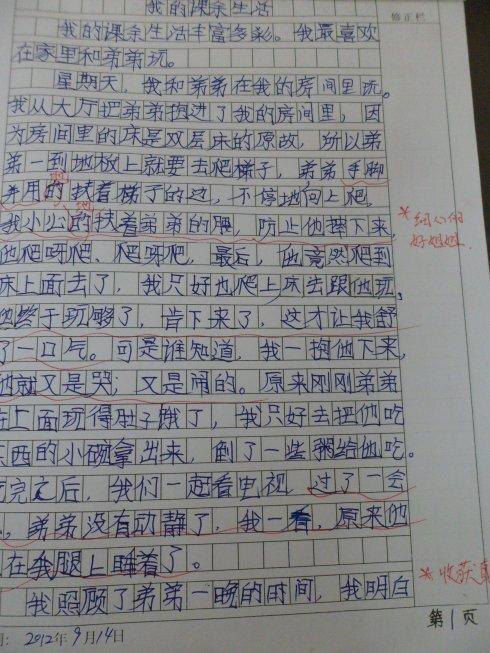 我的课余生活
修正栏
我的课余生活丰富多彩。我最喜欢
在家里和弟弟玩。
星期天，我和弟弟在我的房间里玩。
我从大厅把弟弟抱进了我的房间里，因
为房间里的床是双层床的原故，所以弟
弟一到地板上就要去爬梯子，弟弟手脚
并用的扶着梯子的边，不停地向上爬。
我小心的扶着弟弟的腰，防止他摔下来，
他爬呀爬、爬呀爬，最后，他竟然爬到
床上面去了，我只好也爬上床去跟他玩，
他终于玩够了，肯下来了，这才让我舒
了一口气。可是谁知道，我一抱他下来，
他就又是哭；又是闹的。原来刚刚弟弟
在上面玩得肚子饿了，我只好去把他吃
东西的小碗拿出来，倒了一些粥给他吃。
吃完之后，我们一起看电视，过了一会
，弟弟没有动静了，我一看，原来他
在我腿上睡着了。
我照顾了弟弟一晚的时间，我明白
好姐姐
收获真
第1页
期：2012年9月14日